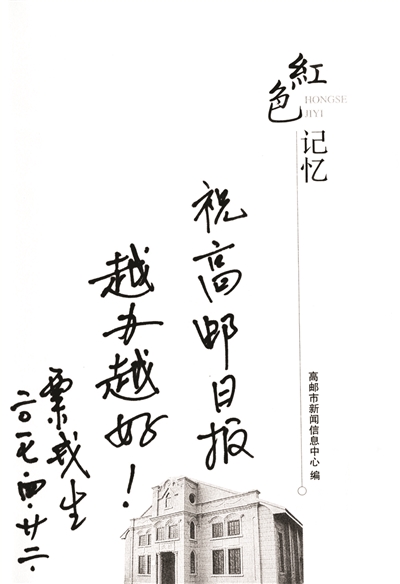 紅色
HONGSE
JIYI
记忆
高邮市新闻信息中心 编
祝高邮日报
越办越好！
粟戎生
二〇一七.四.廿二.